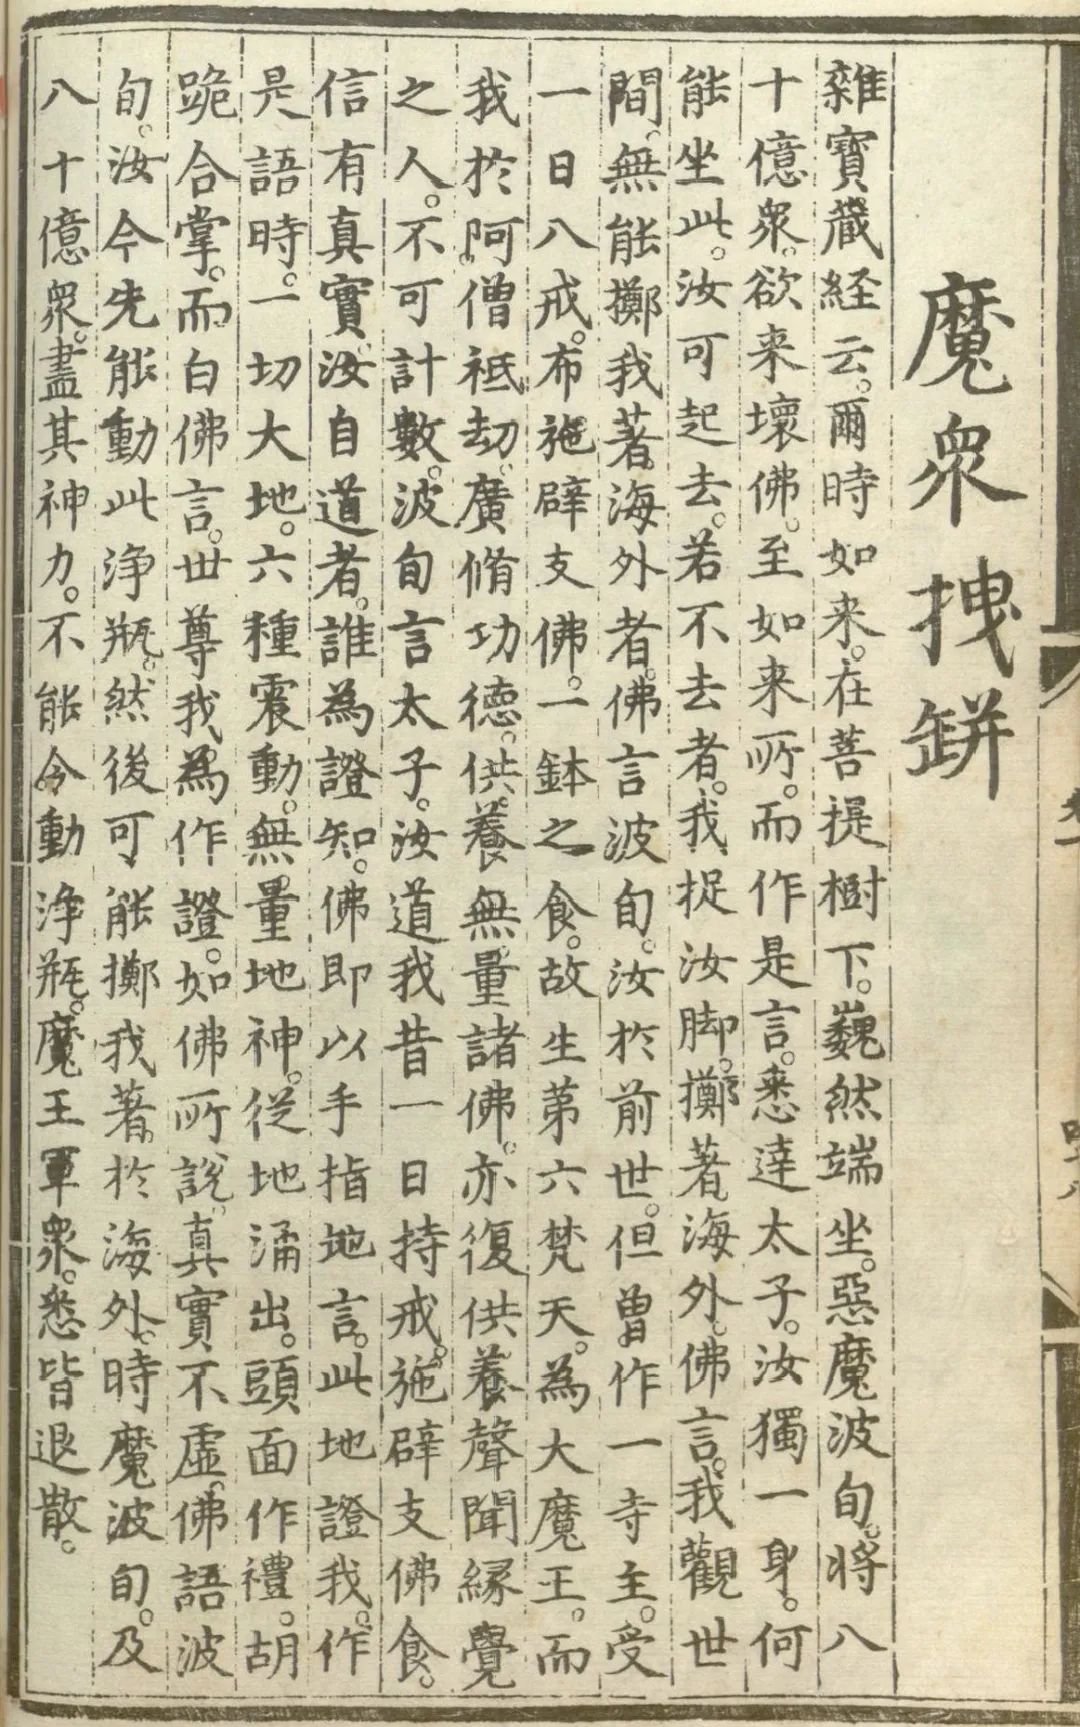 魔衆拽缾
雜寶藏経云。爾時如来。在菩提樹下。巍然端坐。惡魔波旬。将八
十億衆。欲来壞佛。至如来所。而作是言。悉達太子。汝獨一身。何
能坐此。汝可起去。若不去者。我捉汝脚。擲著海外。佛言。我觀世
間。無能擲我著海外者。佛言波旬。汝於前世。但曽作一寺主。受
一日八戒。布施辟支佛。一鉢之食。故生第六梵天。為大魔王。而
我於阿僧祇劫。廣脩功德。供養無量諸佛。亦復供養聲聞縁覺
之人。不可計數。波旬言太子。汝道我昔一日持戒。施辟支佛食。
信有真實。汝自道者。誰為證知。佛即以手指地言。此地證我。作
是語時。一切大地。六種震動。無量地神。從地涌出。頭面作禮。胡
跪合掌。而白佛言。世尊我為作證。如佛所說。真實不虛。佛語波
旬。汝今先能動此淨瓶。然後可能擲我著於海外。時魔波旬。及
八十億衆。盡其神力。不能令動淨瓶。魔王軍衆。悉皆退散。